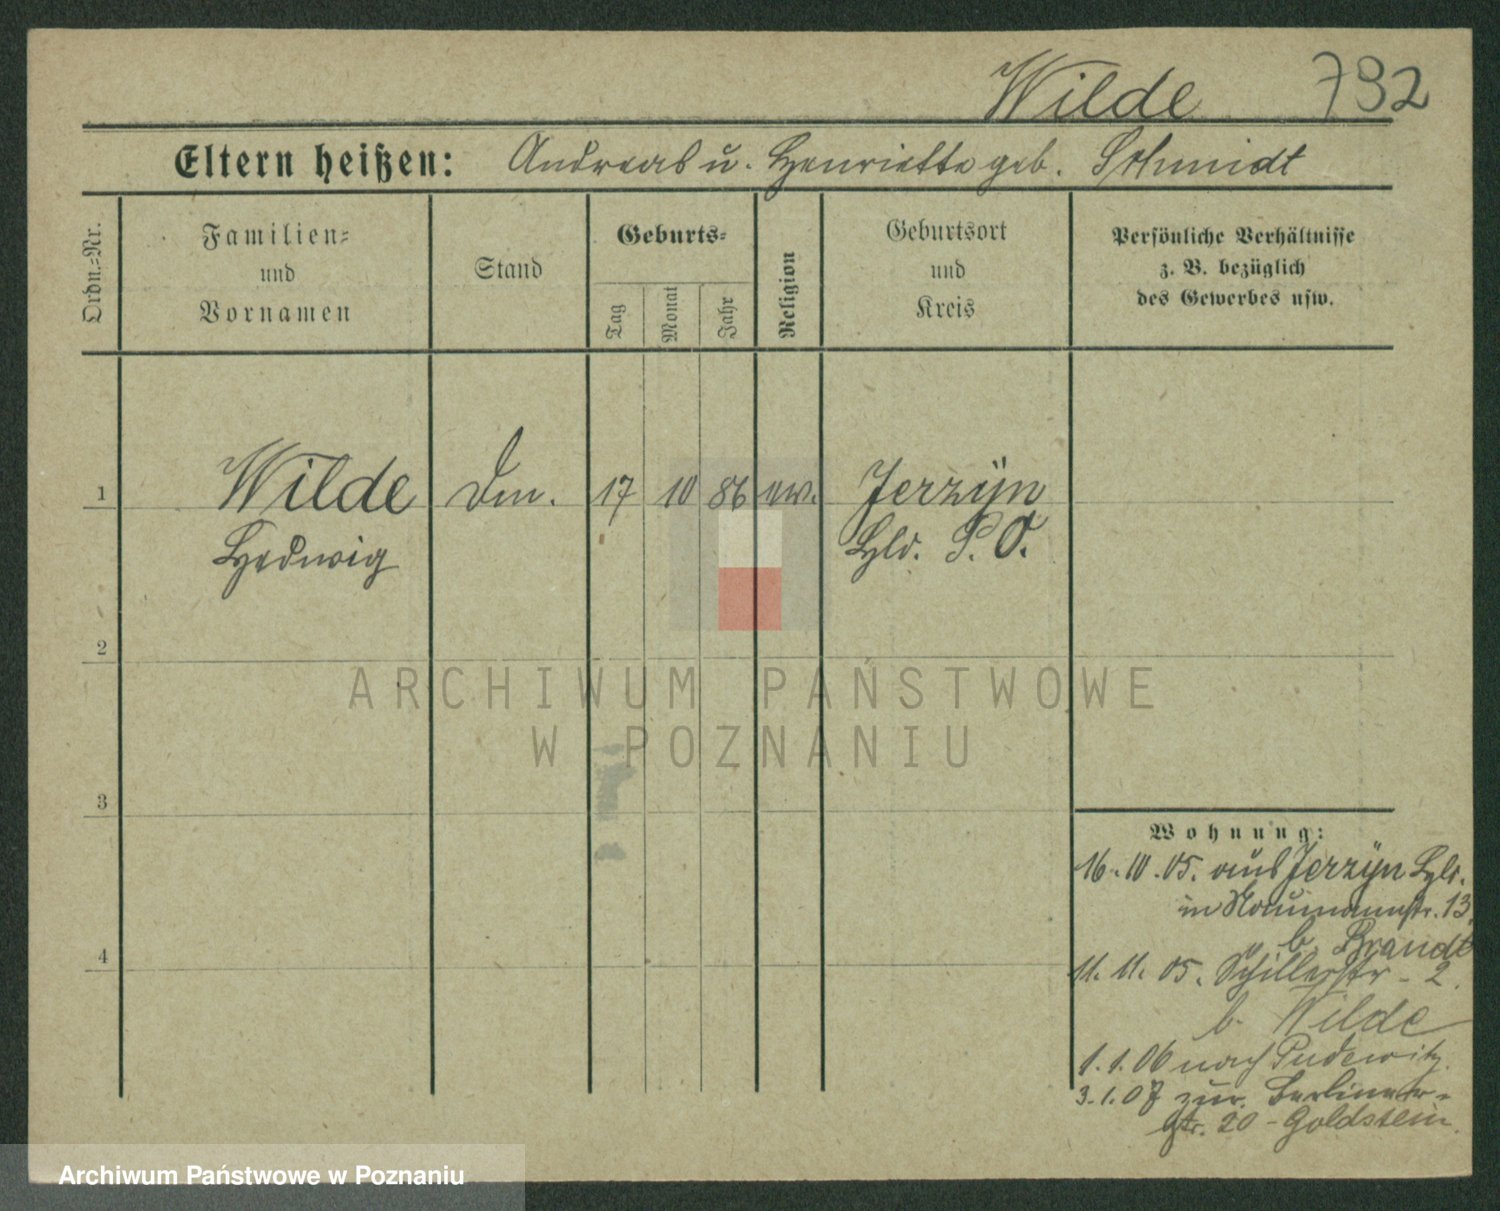 Wilde 792
Eltern heißen: Andreas u. Henriette geb. Schmidt
Ordn.-Nr.
Familien-
und
Vornamen
Stand
Geburts-
Tag
Monat
Jahr
Religion
Geburtsort
und
Kreis
Persönliche Verhältnisse
z. B. bezüglich
des Gewerbes usw.
1 Wilde 17 10 86 ew. Jerzyn
Hedwig P. O.
2
3
4
Wohnung:
16.10.05. aus Jerzyn
in Naumannstr. 13
b. Brandt
11.11.05. Schillerstr. 2.
b. Wilde
1.1.06 nach Pudewitz
3.1.07 zur. Berliner-
str. 20 - Goldstein.
ARCHIWUM PAŃSTWOWE
W POZNANIU
Archiwum Państwowe w Poznaniu